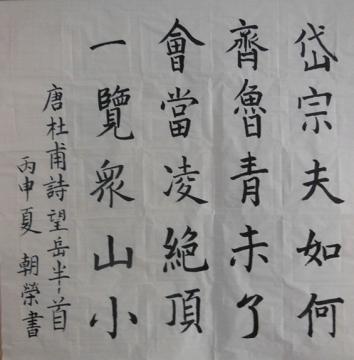 岱宗夫如何
齊魯青未了
會當凌絕頂
一覽眾山小
唐杜甫詩望岳半首
丙申夏 朝榮書